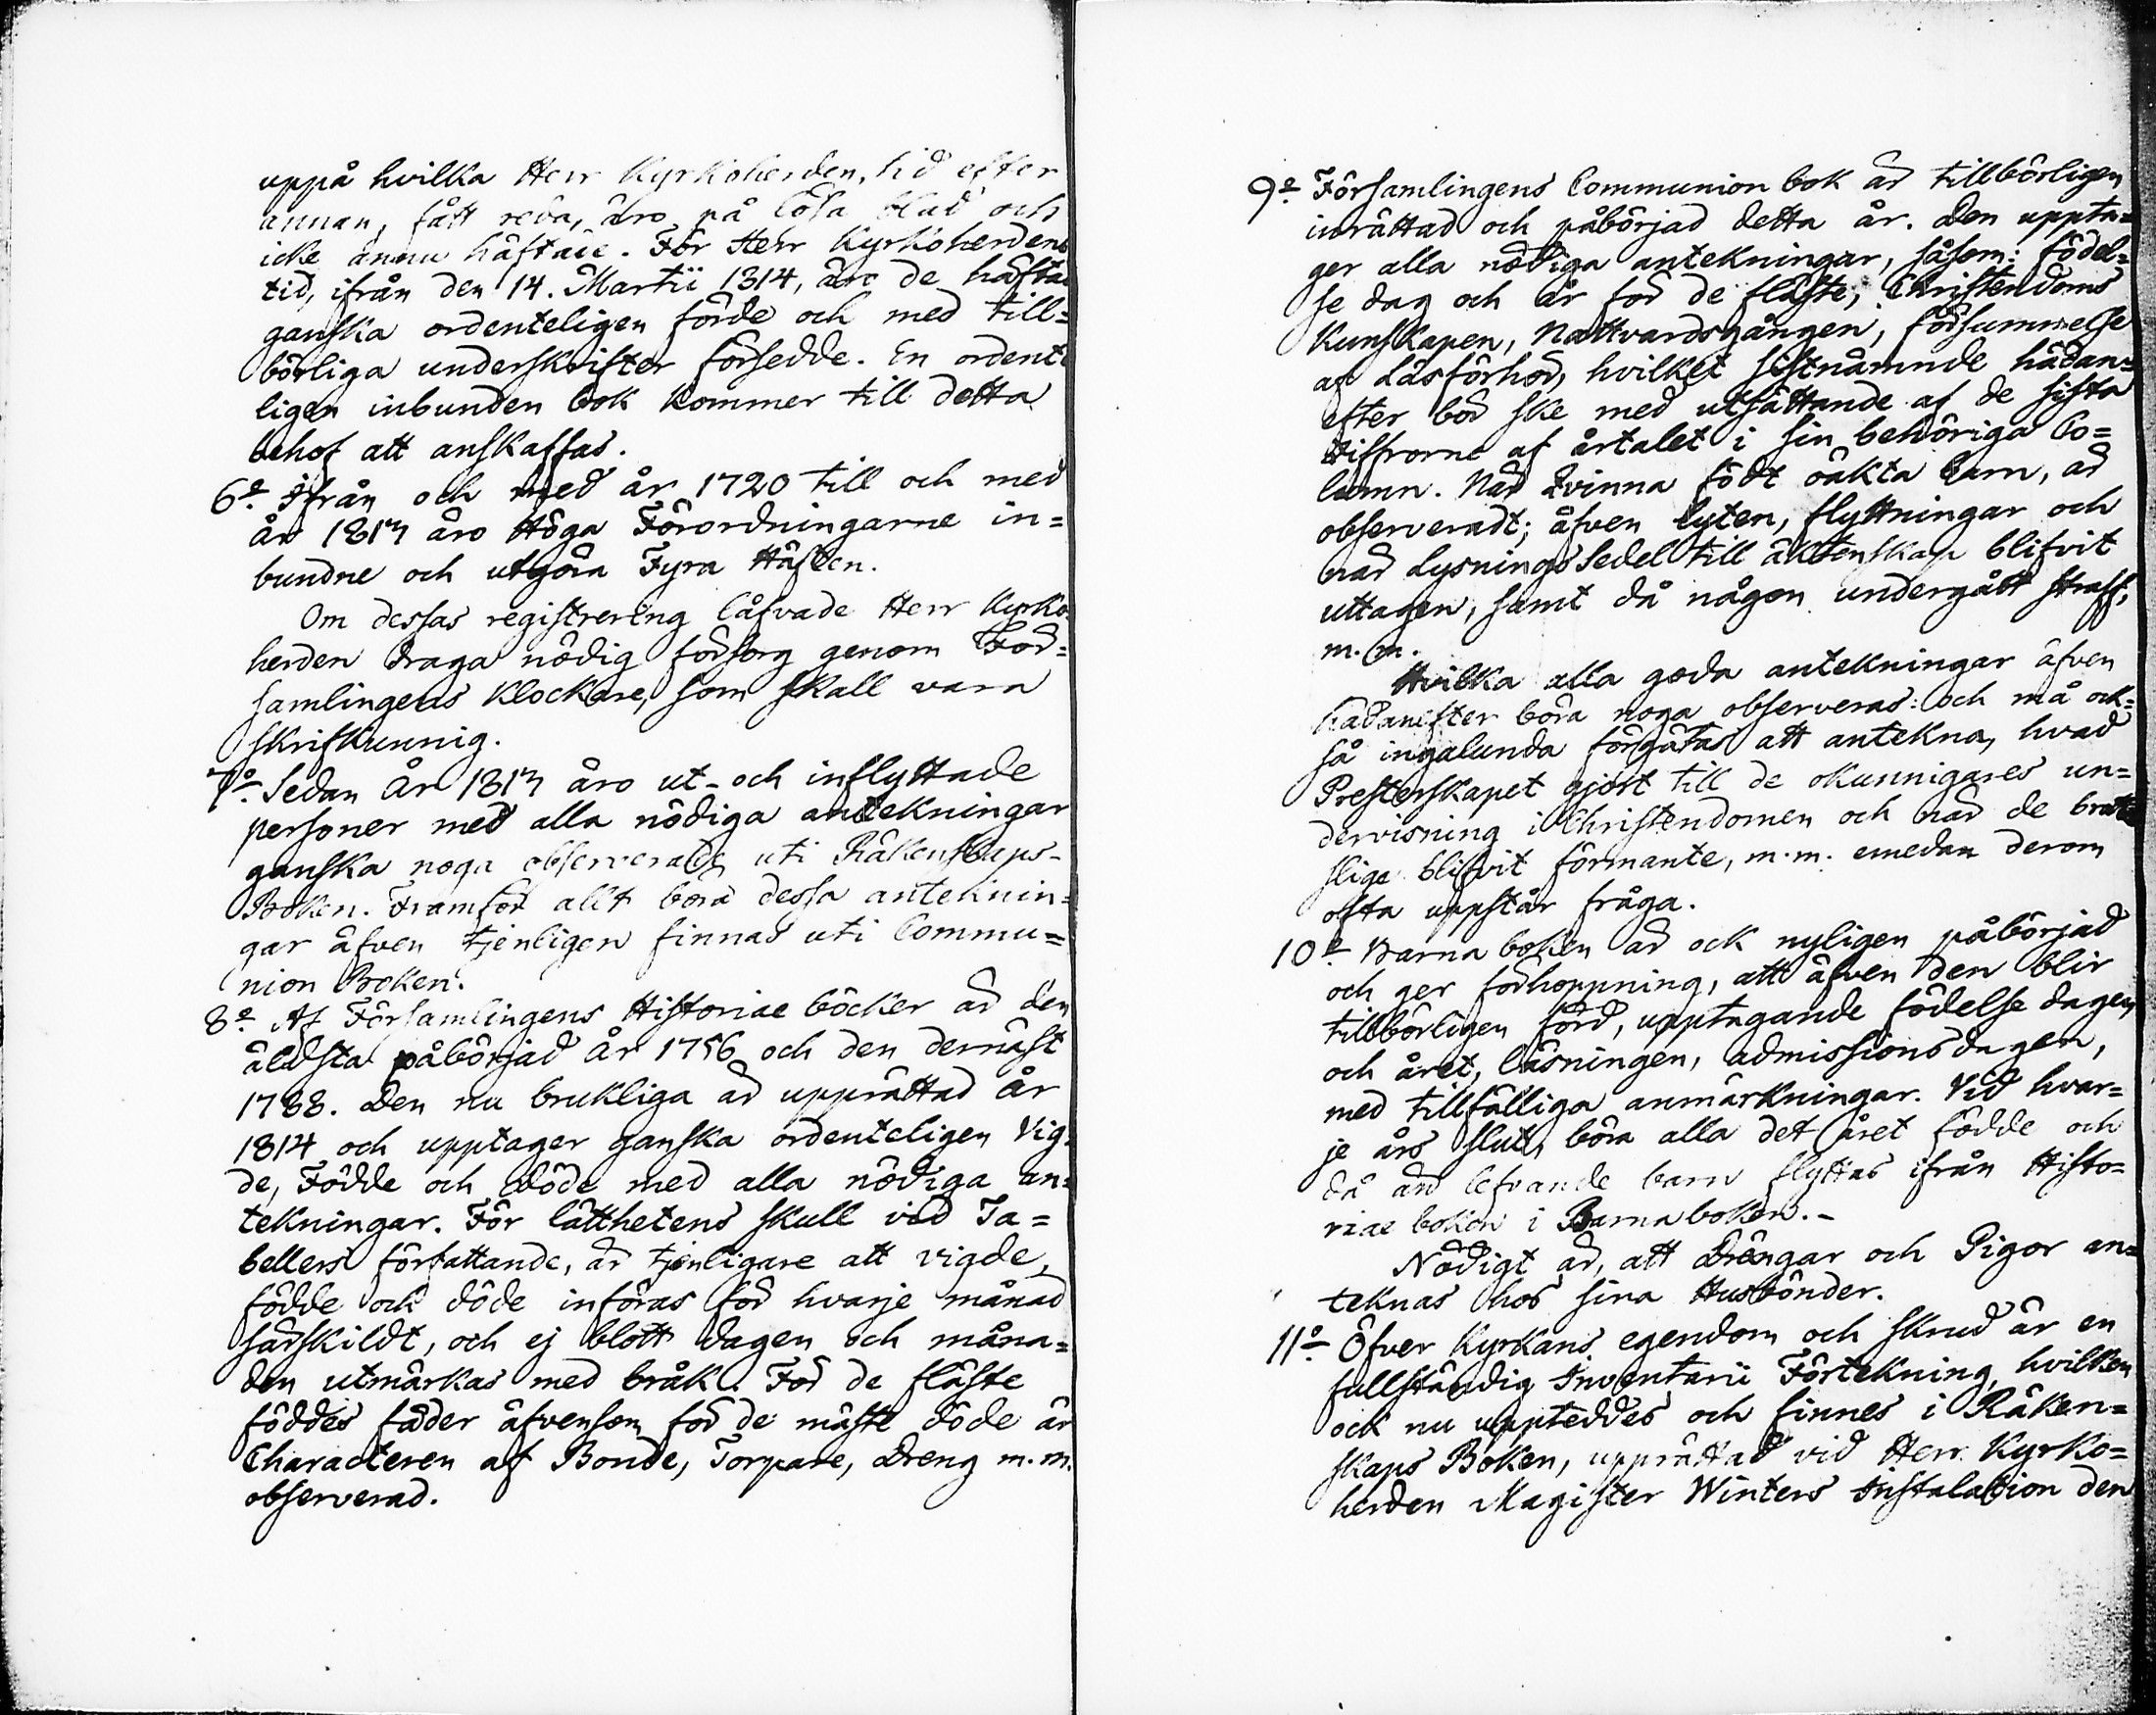 uppå hvilka Herr Kyrkoherden, tid efter
annan, fått reda, äro på lösa blad och
icke ännu häftade. För Herr Kyrkoherdens
tid, ifrån den 14. Martii 1814, äro de häftad
ganska ordenteligen förde och med till=
börliga underskrifter försedde. En ordent
ligen inbunden bok kommer till detta
behof att anskaffas.
6º Ifrån och med år 1720 till och med
år 1817 äro Höga Förordningarne in=
bundne och utgöra Fyra Häften.
Om dessas registrering låfvade Herr Kyrko
herden draga nödig försorg genom För=
samlingens Klockare, som skall vara
skrifkunnig.
7º Sedan År 1817 äro ut- och inflyttade
personer med alla nödiga antekningar
ganska noga observerade uti Räkenskaps-
Boken. Framför allt böra dessa anteknin=
gar äfven tjenligen finnas uti Commu=
nion Boken.
8º Af Församlingens Historiae böcker är den
äldsta påbörjad År 1756 och den dernäst
1788. Den nu brukliga är upprättad År
1814 och upptager ganska ordenteligen Vig=
de, Födde och döde med alla nödiga an=
tekningar. För lätthetens skull vid Ta=
bellers författande, är tjenligare att vigde,
födde och döde införas för hvarje månad
särskildt, och ej blott dagen och måna=
den utmärkas med bråk. För de fläste
föddes fäder äfvensom för de mäste döde är
Characteren af Bonde, Torpare, Dreng m. m.
observerad.
9º Församlingens Communion bok är tillbörligen
inrättad och påbörjad detta år. Den uppta=
ger alla nödiga antekningar, såsom: födel=
se dag och år för de fläste, Christendoms
Kunskapen, Nattvardsgången, försummelse
af Läsförhör, hvilket sistnämnde hädan=
efter bör ske med utsättande af de sista
siffrorne af årtalet i sin behöriga Co=
lumn. När Qvinna födt oäkta barn, är
observeradt; äfven lyten, flyttningar och
när Lysnings Sedel till äktenskap blifvit
uttagen, samt då någon undergått straff,
m. m.
Hvilka alla goda antekningar äfven
hädanefter böra noga observeras: och må ock=
så ingalunda förgätas att antekna, hvad
Presterskapet gjort till de okunnigares un=
dervisning i Christendomen och när de brott
slige blifvit förmante, m. m. emedan derom
ofta uppstår fråga.
10º Barna boken är ock nyligen påbörjad
och ger förhoppning, att äfven den blir
tillbörligen förd, upptagande födelse dagen
och året, läsningen, admissions dagen,
med tillfälliga anmärkningar. Vid hvar=
je års slut, böra alla det året födde och
då än lefvande barn flyttas ifrån Histo=
riae boken i Barnaboken.-
Nödigt är, att Drängar och Pigor an=
teknas hos sina Husbönder.
11º Öfver Kyrkans egendom och skrud är en
fullständig Inventarii Förtekning, hvilken
ock nu uppteddes och finnes i Räken=
skaps Boken, upprättad vid Herr Kyrko=
herden Magister Winters Installation den